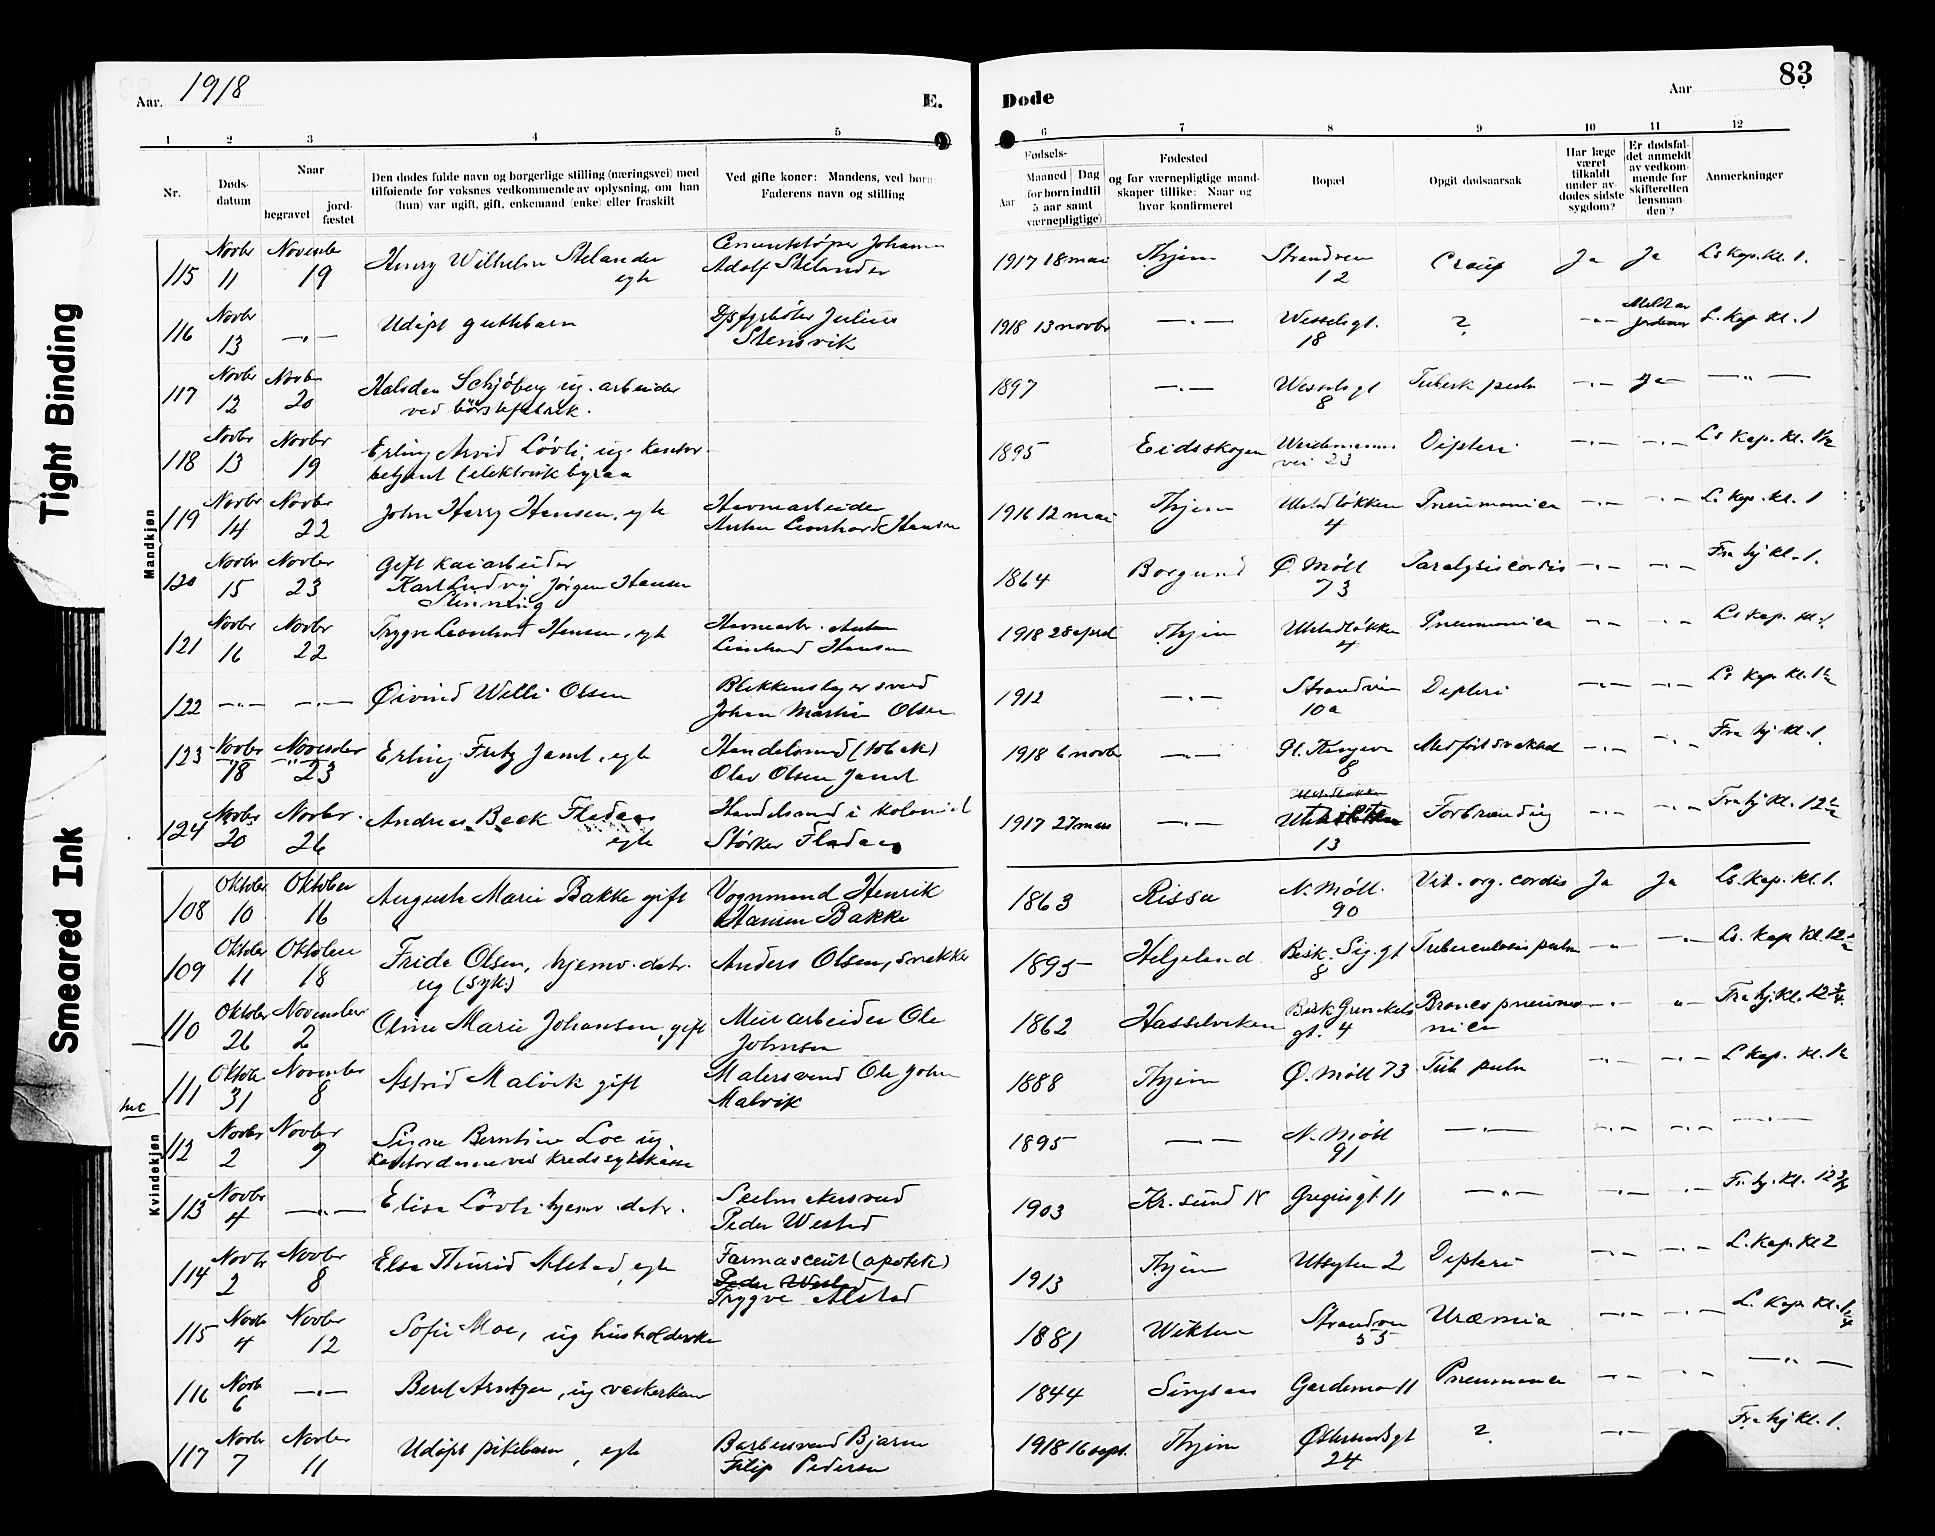 Tight Binding
Smeared Ink
Aar. 1918
E.
Døde
Aar
83
1 2 3 4 5 6 7 8 9 10 11 12
Nr.
Døds-
datum
Naar
begravet
jord-
fæstet
Den dødes fulde navn og borgerlige stilling (næringsvei) med
tilføiende for voksnes vedkommende av oplysning, om han
(hun) var ugift, gift, enkemand (enke) eller fraskilt
Ved gifte koner: Mandens, ved børn:
Faderens navn og stilling
Fødsels-
Aar
Maaned Dag
for børn indtil
5 aar samt
værnepligtige)
Fødested
og for værnepligtige mand-
skaper tillike: Naar og
hvor konfirmeret
Bopæl
Opgit dødsaarsak
Har læge
været
tilkaldt
under av-
dødes sidste
sygdom?
Er dødsfal-
det anmeldt
av vedkom-
mende for
skifteretten
lensman-
den)?
Anmerkninger
Mandkjøn
115 Novbr 11 November 19 Henry Wilhelm Stelander egte Adolf Stelander 1917 18 mai Thjem Strandveien 12 Croup Ja Ja Ls kap. kl. 1.
116 Novbr 13 —"— Udøpt guttebarn Julius Stensvik 1918 13 novbr —"— Wesselsgt. 18 ? —"— L. kap kl. 1
117 Novbr 12 Novbr 20 Halvdan Schjøberg ug. arbeider ved børstefabrik. 1897 —"— Wesselsgt 8 Tuberk pulm —"— Ja —"—
118 Novbr 13 Novbr 19 Erling Arvid Løvli, ug. kontor- betjent (elektrisk byraa 1895 Eidsskogen Weidemanns vei 23 Dipteri —"— —"— Ls kap. kl. 1½
119 Novbr 14 Novbr 22 John Harry Hansen, egte Havnearbeider Anton Leonhard Hansen 1916 12 mai Thjem Ulstadløkken 4 Pneumonica —"— —"— L. kap. kl. 1
120 Novbr 15 Novbr 23 Gift kaiarbeider Karl Ludvig Jørgen Hansen 1864 Borgund Ø. Møll 73 Paralysis cordis —"— —"— Fra hj kl. 1.
121 Novbr 16 Novbr 22 Trygve Leonhard Hansen, egte Havnearb. Anton Leonhard Hansen 1918 28 april Thjem Ulstadløkken 4 Pneumonica —"— —"— Ls kap. kl. 1.
122 —"— —"— Øivind Willi Olsen Blikkenslagersvend Johan Martin Olsen 1912 —"— Strandveien 10a Dipteri —"— —"— Ls kap. kl. 1½
123 Novbr 18 November 23 Erling Fritz Jamt, egte Handelsmand (tobak) Olav Olsen Jamt 1918 6 novbr —"— 8 Medfødt svakhet —"— —"— Fra hj kl. 1.
124 Novbr 20 Novbr. 26 Andreas Beck Fladaas egte Handelsmand i kolonial Størker Fladaas 1917 27 mars —"— 13 Forbrænding —"— —"— Fra hj kl. 12½
Kvindekjøn
108 Oktober 10 Oktober 16 Augusta Marie Bakke gift Vognmand Henrik Hansen Bakke 1863 Rissa N. Møll. 90 Vit. org. cordis Ja Ja Ls. kap. kl. 1.
109 Oktober 11 Oktober 18 Frida Olsen, hjemv. datr. ug (syk.) Anders Olsen, snekker 1895 Helgeland Bisk. Sig. gt 8 Tuberculosis pulm —"— —"— Ls. kap kl. 12½
110 Oktober 26 November 2 Oline Marie Johansen, gift Murarbeider Ole Johnsen 1862 Hasselviken gt. 4 Broncopneumonica —"— " — Fra hj kl. 12¾
111 Oktober 31 November 8 Astrid Malvik gift Malersvend Ole John Malvik 1888 Thjem Ø. Møll 73 Tub pulm —"— —"— L kap. kl. 1½
112 Novbr 2 Novbr 9 Signe Berntine Loe ug. kontordame ved kredssykekasse 1895 —"— N. Møll 91 —"— —"— —"— —"—
113 Novbr 4 —"— Elise Løvli hjemv. datr. Peder Westad 1903 Kr. sund N Gregusgt 11 —"— —"— —"— Fr. hj. kl. 12¾
114 Novbr 2 Novbr 8 Else Thurid Alstad, egte Farmasceut (apotek) Peder Westad Trygve Alstad 1913 Thjem Utsyten 2 Dipteri —"— —"— L. kap. kl 2
115 Novbr 4 Novbr 12 Sofie Moe, ug husholderske 1881 Strandvei 55 Uræmia —"— —"— L. kap. kl. 1¼
116 Novbr 6 —"— 1844 Singsaas Gardemo 11 Pneumonica —"— —"— —"—
117 Novbr 7 Novbr 11 Udøpt pikebarn, egte Barbersvend Bjarne Filip Pedersen 1918 16 sept. Thjem Østersundsgt 24 ? —"— Fra hj kl. 1.